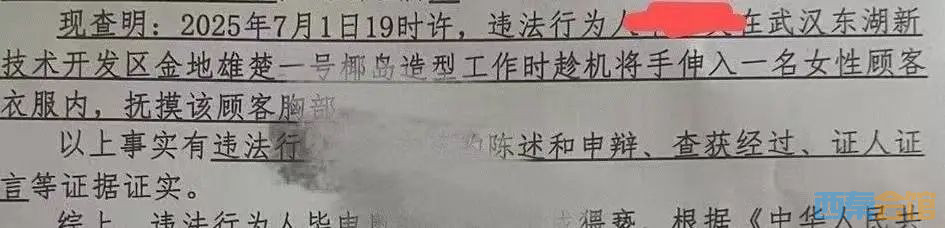 现查明：2025年7月1日19时许，违法行为人 在武汉东湖新
技术开发区金地雄楚一号椰岛造型工作时趁机将手伸入一名女性顾客
衣服内，抚摸该顾客胸部
以上事实有违法行 的陈述和申辩、查获经过、证人证
言等证据证实。
综上，违法行为人 猥亵，根据《中华人民共